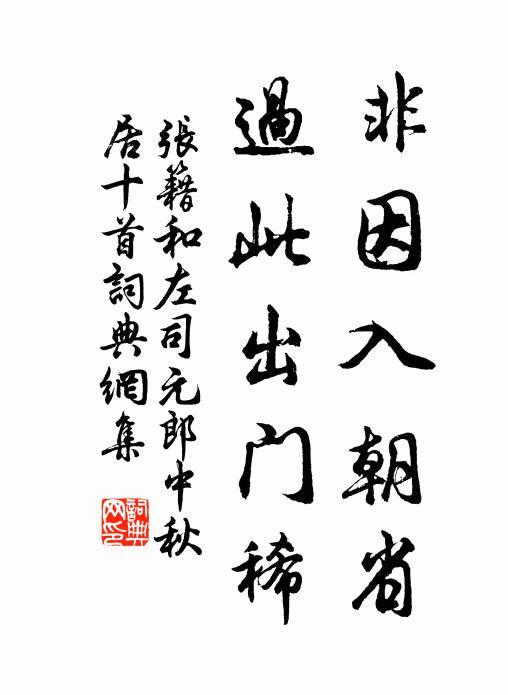 非因入朝省
過此出門稀
張籍和左司元郎中秋
居十首詞典網集
詞典
网印